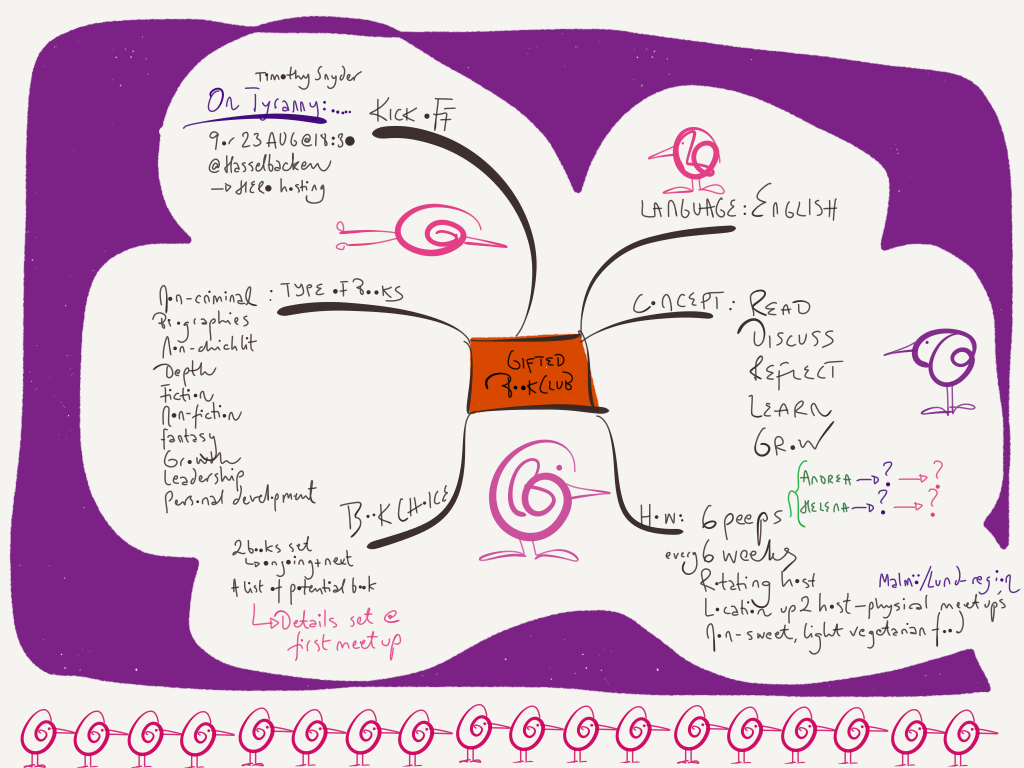 Timothy Snyder
On Tyranny:.....
KICK OFF
9 or 23 AUG @ 18:30
@Hasselbacken
→ HERO hosting
LANGUAGE: ENGLISH
TYPE OF BOOKS
:
Non-criminal
Biographies
Non-chicklit
Depth
Fiction
Non-fiction
fantasy
Growth
Leadership
Personal development
CONCEPT: READ
DISCUSS
REFLECT
LEARN
GROW
GIFTED
BOOKCLUB
ANDREA → ? → ?
HELENA → ? → ?
BOOK CHOICE
2 books set
↳ ongoing + next
A list of potential book
↳ Details set @
first meet up
HOW: 6 peeps
every 6 weeks
Rotating host
Malmö/Lund region
Location up 2 host – physical meetups
Non-sweet, light vegetarian food